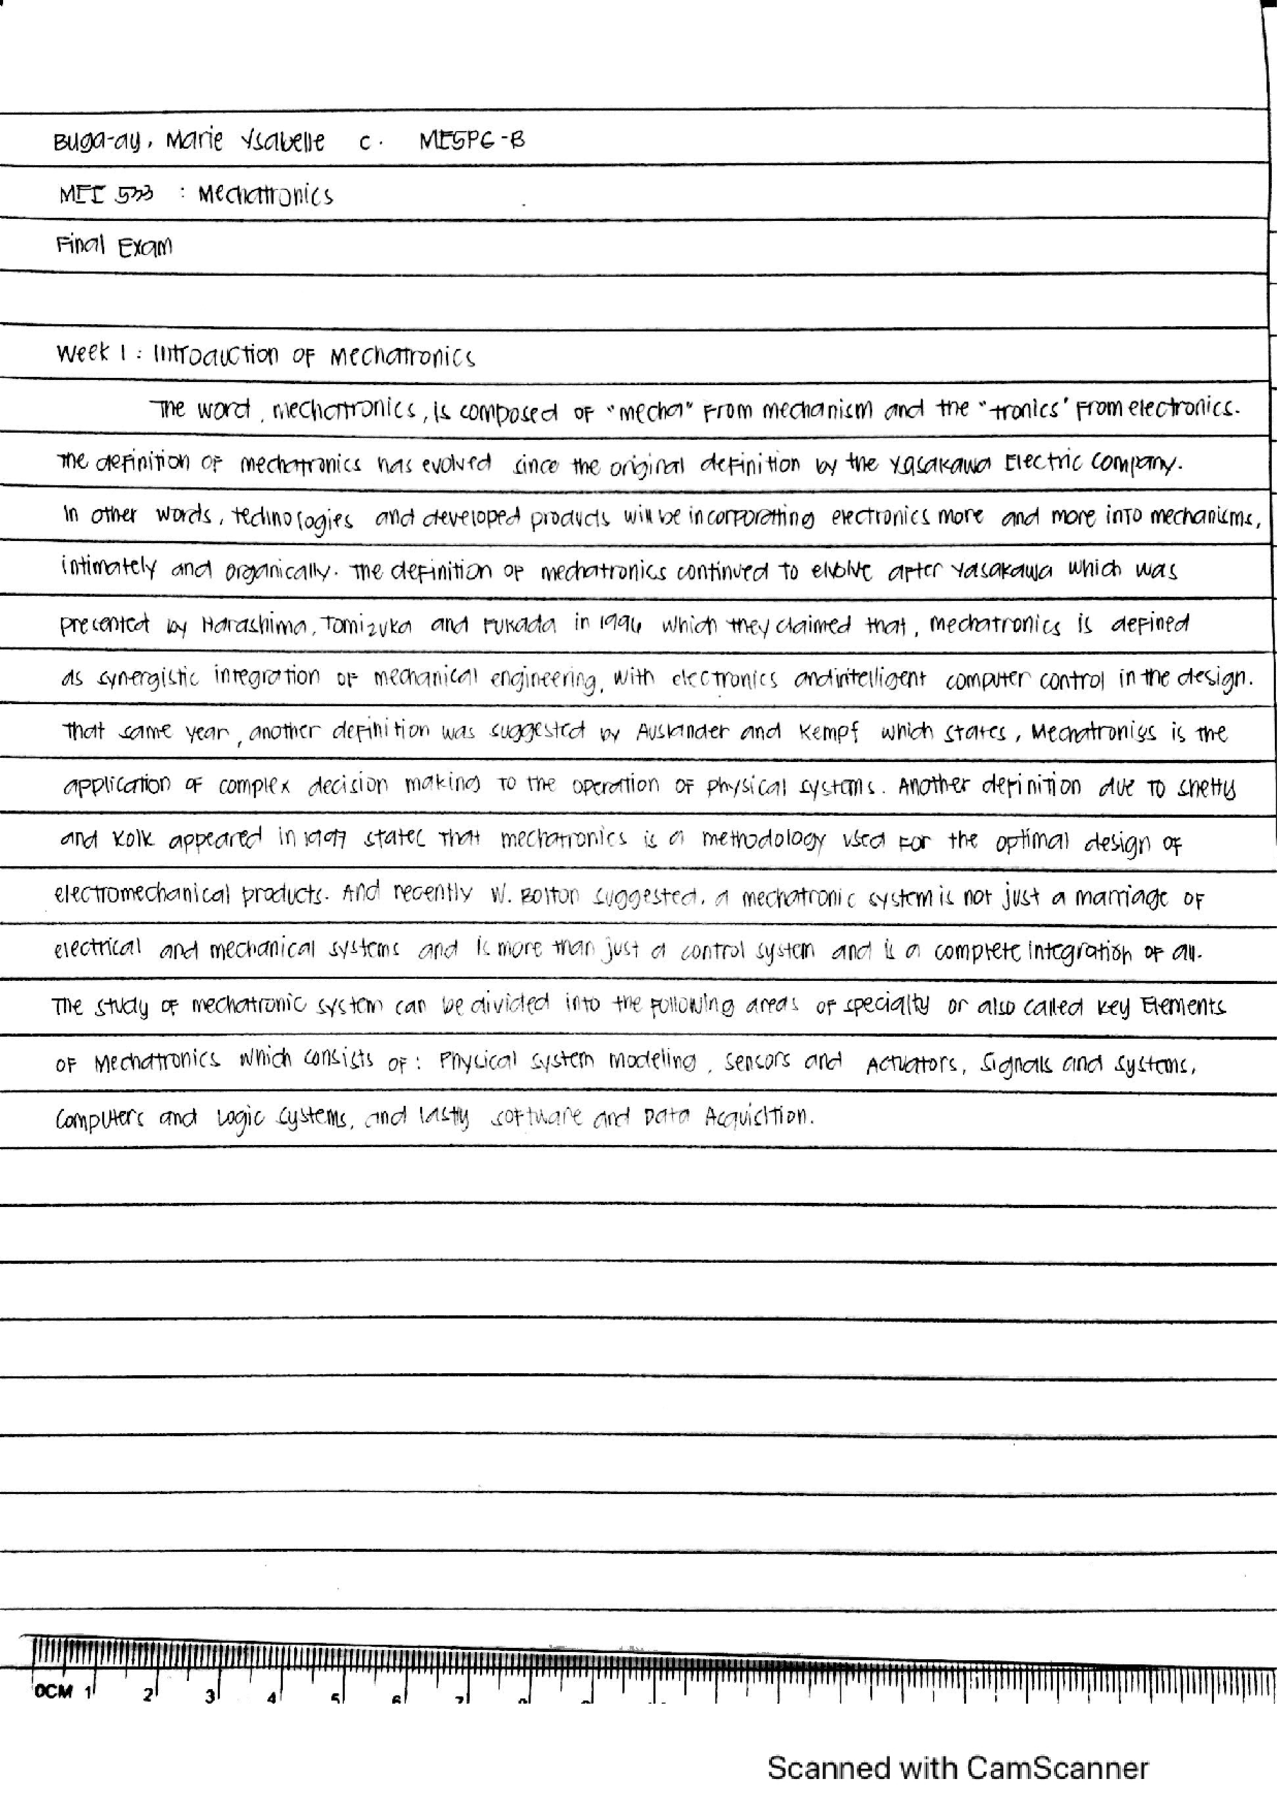 Buga-ay, Marie Ysabelle C. ME5PC-B
MEE 533 : Mechatronics
Final Exam
Week 1 : Introduction of Mechatronics
The word, mechatronics, is composed of "mecha" from mechanism and the "tronics" from electronics.
The definition of mechatronics has evolved since the original definition by the Yasakawa Electric Company.
In other words, technologies and developed products will be incorporating electronics more and more into mechanisms,
intimately and organically. The definition of mechatronics continued to evolve after Yasakawa which was
presented by Harashima, Tomizuka and Fukada in 1996 which they claimed that, mechatronics is defined
as synergistic integration of mechanical engineering, with electronics and intelligent computer control in the design.
That same year, another definition was suggested by Auslander and Kempf which states, Mechatronics is the
application of complex decision making to the operation of physical systems. Another definition due to Shetty
and Kolk appeared in 1997 states that mechatronics is a methodology used for the optimal design of
electromechanical products. And recently W. Bolton suggested, a mechatronic system is not just a marriage of
electrical and mechanical systems and is more than just a control system and is a complete integration of all.
The study of mechatronic system can be divided into the following areas of specialty or also called Key Elements
of Mechatronics which consists of : Physical system modeling, Sensors and Actuators, Signals and systems,
Computers and Logic systems, and lastly software and Data Acquisition.
0CM 1 2 3 4 5 6 7
Scanned with CamScanner